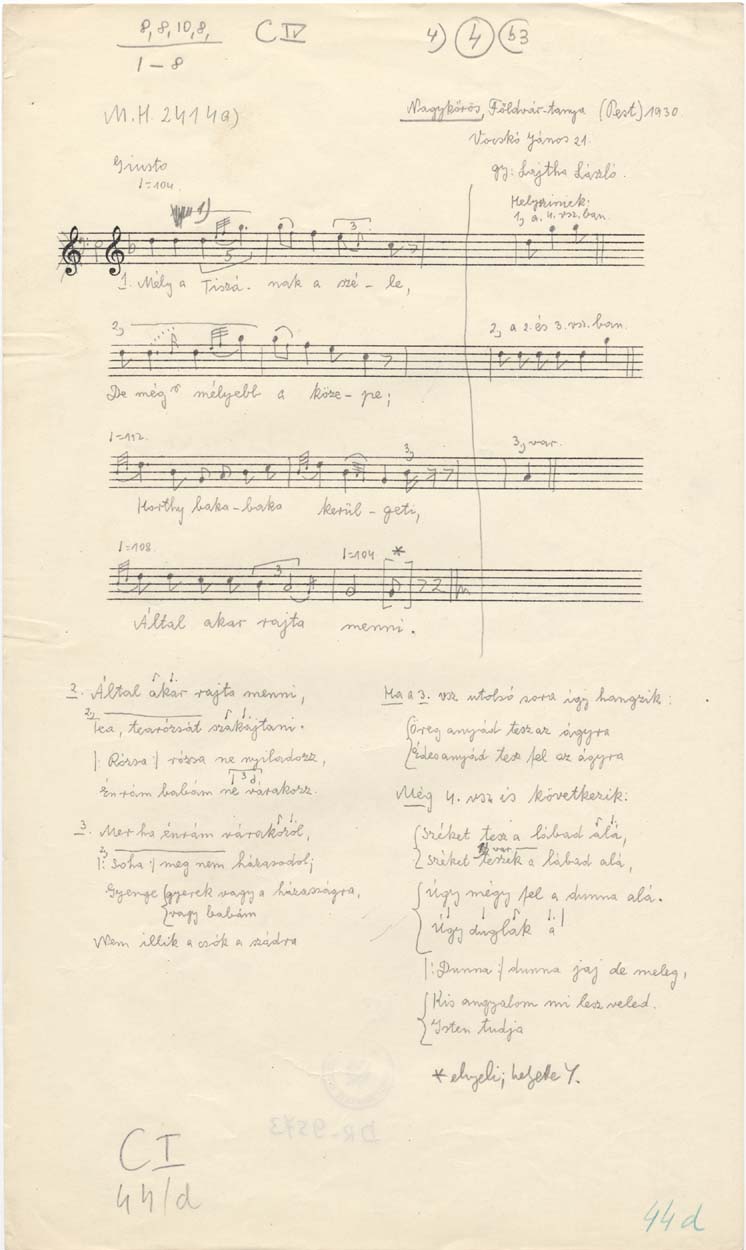 8, 8, 10, 8,
C IV
4) 4 b3
1 – 8
M.H. 2414a)
Nagykőrös, Földvár-tanya (Pest) 1930
Vocskó János 21.
gy: Lajtha László.
Giusto
♩=104.
Helyszíniek:
1, a. 4. vsz. ban.
1)
5
3
1. Mély a Tiszá- nak a szé - le,
2,
2, a 2. és 3. vsz. ban.
De még mélyebb a köze - pe;
♩=112.
3,
3, var.
Horthy baka - baka kerül - geti,
♩=108.
♩=104
*
3
Által akar rajta menni.
2. Által akar rajta menni,
2,
Tea, tearózsát szakájtani.
|: Rózsa :| rózsa ne nyiladozz,
3
Énrám babám ne várakozz.
3. Mer ha énrám várakozol,
2,
|: Soha :| meg nem házasodol;
Gyenge gyerek vagy a házasságra,
vagy babám
Nem illik a csók a szádra
Ha a 3. vsz utolsó sora így hangzik:
Öreg anyád tesz az ágyra
Édesanyád tesz fel az ágyra
Még 4. vsz is következik:
Széket tesz a lábad alá,
var.
Széket teszek a lábad alá,
Úgy mégy fel a dunna alá.
Úgy duglak a
|: Dunna :| dunna jaj de meleg,
Kis angyalom mi lesz veled.
Isten tudja
* elnyeli; helyette 7.
DR-9573
C I
44/d
44 d